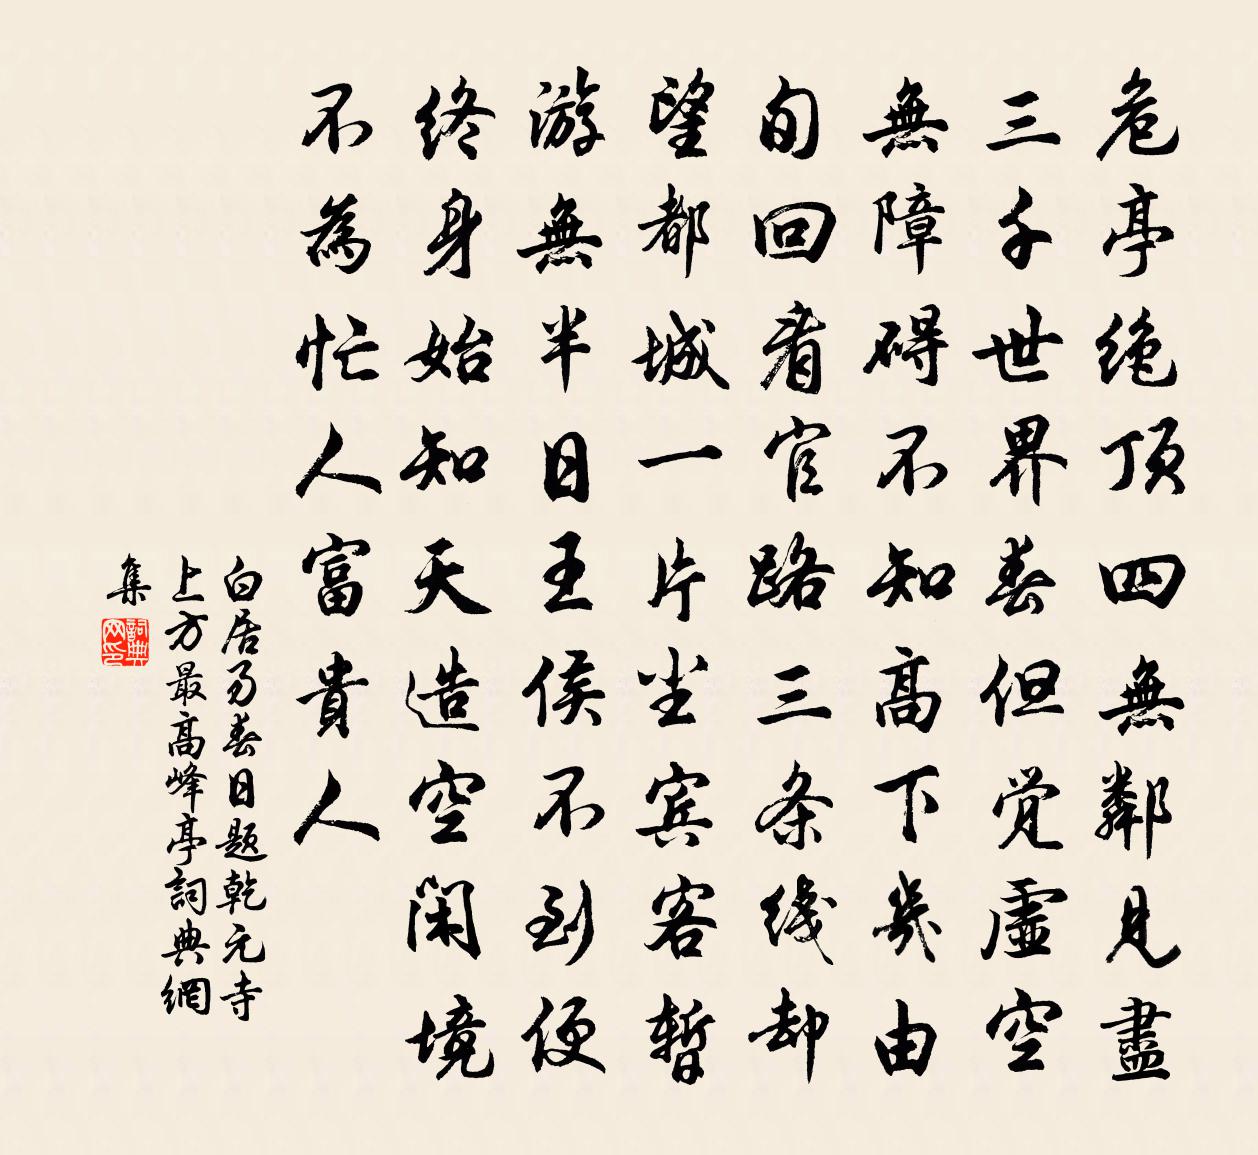 危亭绝顶四無鄰見盡
三千世界春但觉虛空
無障碍不知高下幾由
旬回看官路三条线却
望都城一片尘宾客暫
游無半日王侯不到便
终身始知天造空闲境
不為忙人富貴人
白居易春日題乾元寺
上方最高峰亭詞典網
集
詞典网印